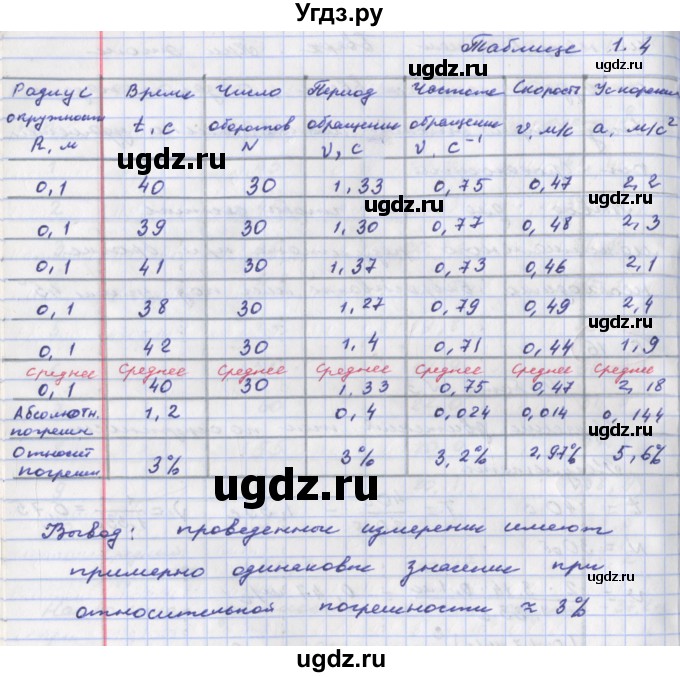 Угдз.ру
Таблице 1.4
ugdz.ru ugdz.ru
Радиус Время Число Период Частоте Скорость Ускорения
окружности t, с оборотов обращение обращение v, м/с a, м/с²
R, м N ν, с ν, с⁻¹
ugdz.ru
0,1 40 30 1,33 0,75 0,47 2,2
ugdz.ru
0,1 39 30 1,30 0,77 0,48 2,3
0,1 41 30 1,37 0,73 0,46 2,1
0,1 38 30 1,27 0,79 0,49 2,4
ugdz.ru
0,1 42 30 1,4 0,71 0,44 1,9
Среднее Среднее Среднее Среднее Среднее Среднее Среднее
0,1 40 30 1,33 0,75 0,47 2,18
ugdz.ru
Абсолютн. 1,2 0,4 0,024 0,014 0,144
погрешн.
Относит 3% 3% 3,2% 2,97% 5,6%
погрешн
ugdz.ru
ugdz.ru
Вывод: проведенные измерение имеют
примерно одинаковые значение при
относительной погрешности ≈ 3%
ugdz.ru
ugdz.ru